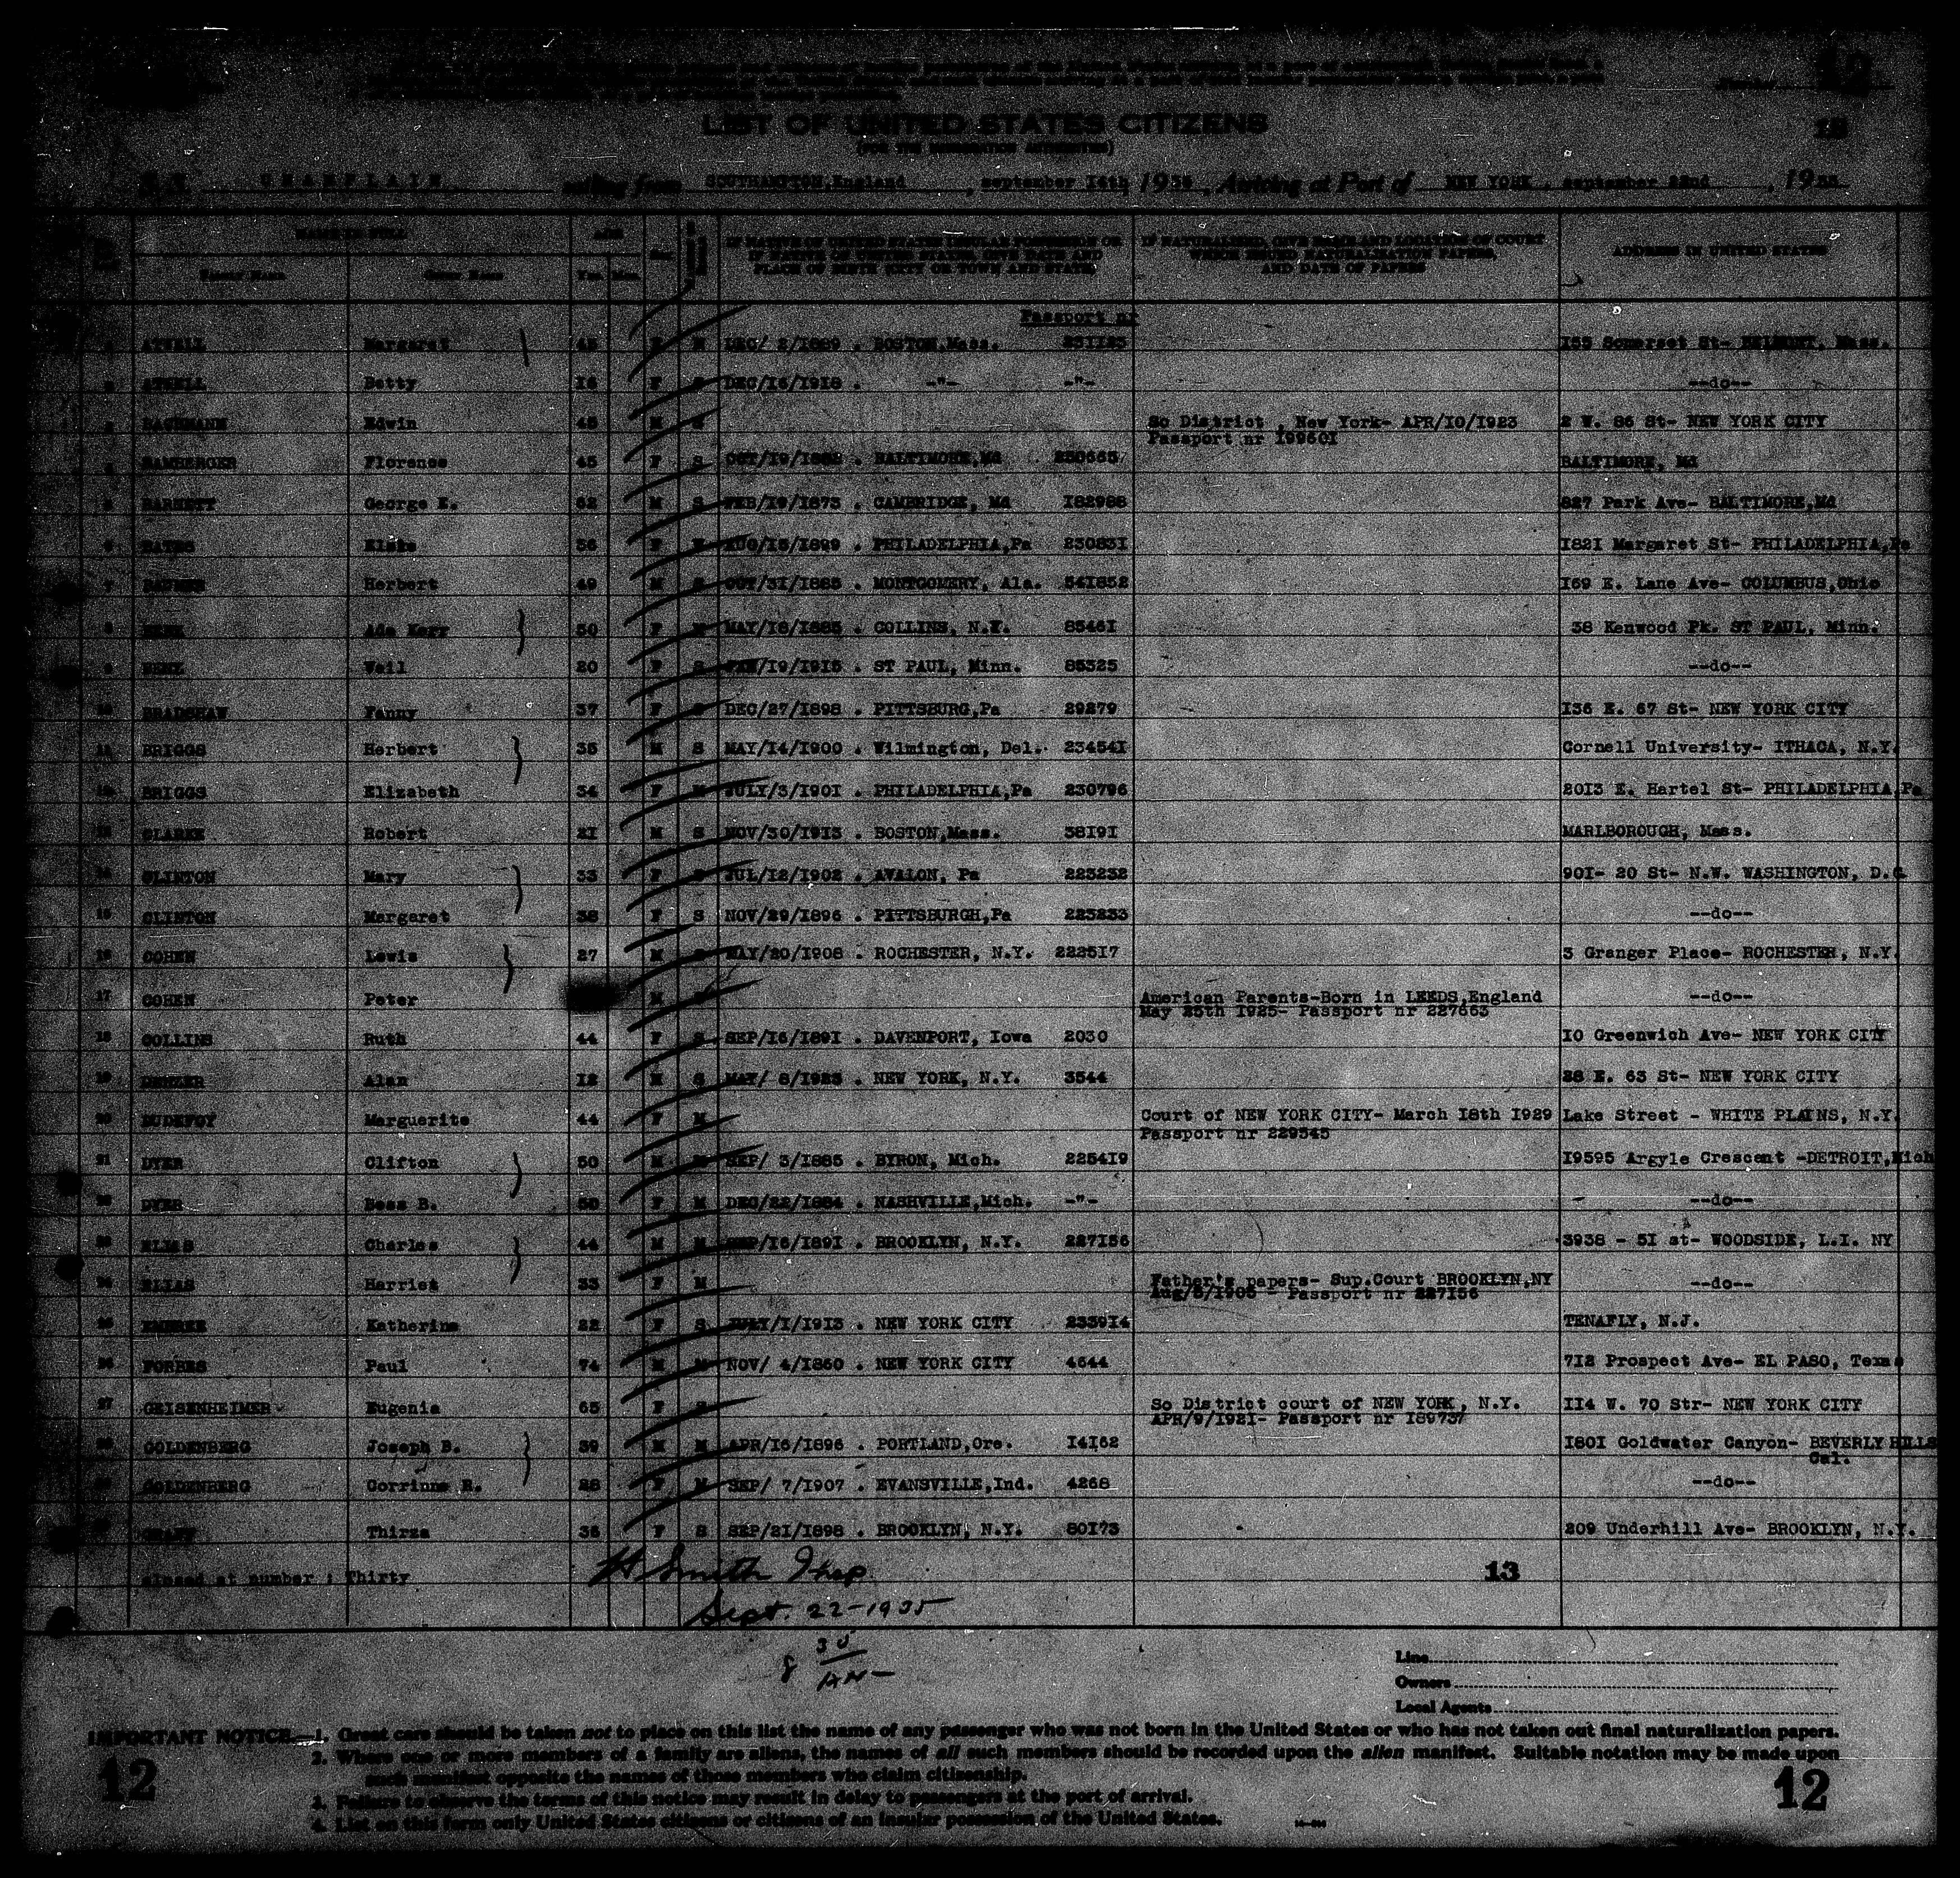 LIST OF UNITED STATES CITIZENS
(FOR THE IMMIGRATION AUTHORITIES)
S.S. CHAMPLAIN sailing from SOUTHAMPTON, England, september 14th 1935, Arriving at Port of NEW YORK, september 22nd, 1935
NAME IN FULL AGE Sex ADDRESS IN UNITED STATES
Family Name Given Name Yrs. Mos.
IF NATURALIZED, GIVE NAME AND LOCATION OF COURT WHICH ISSUED NATURALIZATION PAPERS, AND DATE OF PAPERS
Passport nr
ATWELL Margaret 45 F DEC/ 2/1889 . BOSTON,Mass. 155 Somerset St- BELMONT, Mass.
ATWELL Betty 16 F S DEC/16/1918 . -"- -"- --do--
BACHMANN Edwin 45 M S So District , New York- APR/10/1923 2 W. 86 St- NEW YORK CITY
Passport nr 199601
BAMBERGER Florence 45 F S BALTIMORE,Md 230665 BALTIMORE, Md
5 BARNETT George E. 62 M S FEB/19/1873 . CAMBRIDGE, Md 182988 827 Park Ave- BALTIMORE,Md
6 BATES 36 F AUG/15/1899 . PHILADELPHIA,Pa 230831 1821 Margaret St- PHILADELPHIA,Pa
7 Herbert 49 M S OCT/31/1885 . MONTGOMERY, Ala. 541852 169 E. Lane Ave- COLUMBUS,Ohio
8 BENZ Ada Kerr 50 F MAY/18/1885 . COLLINS, N.Y. 85461 38 Kenwood Pk. ST PAUL, Minn.
9 BENZ 20 F S JAN/19/1915 . ST PAUL, Minn. 85325 --do--
10 BRADSHAW Fanny 37 F S DEC/27/1898 . PITTSBURG,Pa 29279 136 E. 67 St- NEW YORK CITY
11 BRIGGS Herbert 35 M S MAY/14/1900 . Wilmington, Del. 234541 Cornell University- ITHACA, N.Y.
12 BRIGGS Elizabeth 34 F M JULY/3/1901 . PHILADELPHIA,Pa 230796 2013 E. Hartel St- PHILADELPHIA,Pa
13 CLARKE Robert 21 M S NOV/30/1913 . BOSTON,Mass. 38191 MARLBOROUGH, Mass.
14 CLINTON Mary 33 F S JUL/12/1902 . AVALON, Pa 223232 901- 20 St- N.W. WASHINGTON, D.C.
15 CLINTON Margaret 38 F S NOV/29/1896 . PITTSBURGH,Pa 223233 --do--
16 COHEN Lewis 27 M S MAY/20/1908 . ROCHESTER, N.Y. 222517 3 Granger Place- ROCHESTER, N.Y.
17 COHEN Peter M American Parents-Born in LEEDS,England --do--
May 25th 1925- Passport nr 227663
18 COLLINS Ruth 44 F S SEP/16/1891 . DAVENPORT, Iowa 2030 10 Greenwich Ave- NEW YORK CITY
19 Alan 12 M S MAY/ 8/1923 . NEW YORK, N.Y. 3544 28 E. 63 St- NEW YORK CITY
20 DUDEFOY Marguerite 44 F M Court of NEW YORK CITY- March 18th 1929 Lake Street - WHITE PLAINS, N.Y.
Passport nr 229545
21 DYER Clifton 50 M M SEP/ 3/1885 . BYRON, Mich. 225419 19595 Argyle Crescent -DETROIT,Mich
22 DYER Bess B. 50 F M DEC/22/1884 . NASHVILLE,Mich. -"- --do--
23 ELIAS Charles 44 M M SEP/16/1891 . BROOKLYN, N.Y. 227156 3938 - 51 st- WOODSIDE, L.I. NY
24 ELIAS Harriet 33 F M Father's papers- Sup.Court BROOKLYN,NY --do--
Aug/8/1905 - Passport nr 227156
25 Katherine 22 F S JULY/1/1913 . NEW YORK CITY 233914 TENAFLY, N.J.
26 FORBES Paul 74 M M NOV/ 4/1860 . NEW YORK CITY 4644 712 Prospect Ave- EL PASO, Texas
27 GEISENHEIMER Eugenia 65 F S So District court of NEW YORK, N.Y. 114 W. 70 Str- NEW YORK CITY
APR/9/1921- Passport nr 189737
28 GOLDENBERG Joseph B. 39 M M APR/16/1896 . PORTLAND,Ore. 14162 1801 Goldwater Canyon- BEVERLY HILLS
Cal.
GOLDENBERG Corrinne E. 28 F M SEP/ 7/1907 . EVANSVILLE,Ind. 4268 --do--
Thirza 36 F S SEP/21/1898 . BROOKLYN, N.Y. 80173 209 Underhill Ave- BROOKLYN, N.Y.
closed at number : Thirty H Smith Insp 13
Sept. 22-1935
8 30 AM
Line
Owners
Local Agents
IMPORTANT NOTICE.—1. Great care should be taken not to place on this list the name of any passenger who was not born in the United States or who has not taken out final naturalization papers.
2. Where one or more members of a family are aliens, the names of all such members should be recorded upon the alien manifest. Suitable notation may be made upon
such manifest opposite the names of those members who claim citizenship.
3. Failure to observe the terms of this notice may result in delay to passengers at the port of arrival.
4. List on this form only United States citizens or citizens of an insular possession of the United States.
12 12